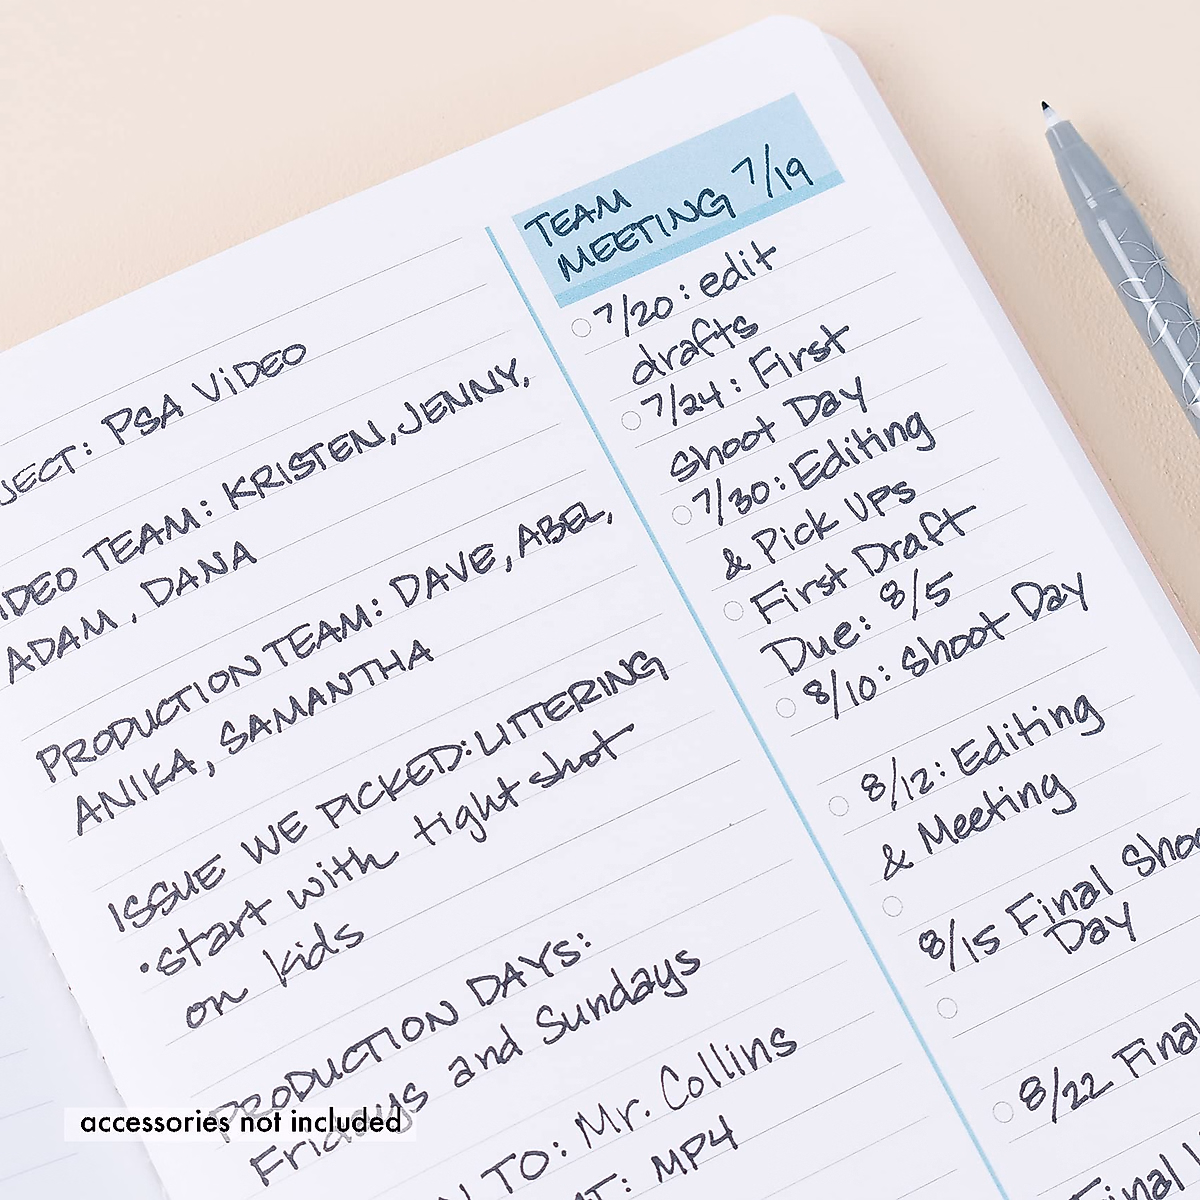 JECT: PSA VIDEO
IDEO TEAM: KRISTEN, JENNY,
ADAM, DANA
PRODUCTION TEAM: DAVE, ABEL,
ANIKA, SAMANTHA
ISSUE WE PICKED: LITTERING
• start with tight shot
on kids
PRODUCTION DAYS:
Fridays and Sundays
N TO: Mr. Collins
AT: MP4
TEAM
MEETING 7/19
7/20: edit
drafts
7/24: First
Shoot Day
7/30: Editing
& Pick UPS
First Draft
Due: 8/5
8/10: Shoot Day
8/12: Editing
& Meeting
8/15 Final Shoo
Day
8/22 Final
Final
accessories not included